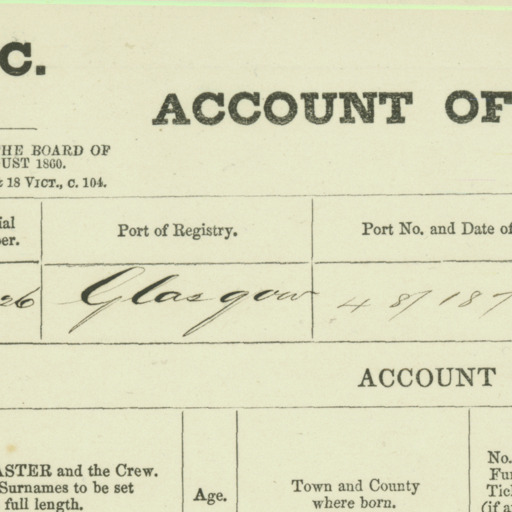 C.
ACCOUNT OF
THE BOARD OF
UST 1860.
& 18 VICT., C. 104.
ial
er.
Port of Registry.
Port No. and Date of
26
Glasgow
48/187
ACCOUNT
ASTER and the Crew.
Surnames to be set
full length.
Age.
Town and County
where born.
No.
Fu
Tic
(if a